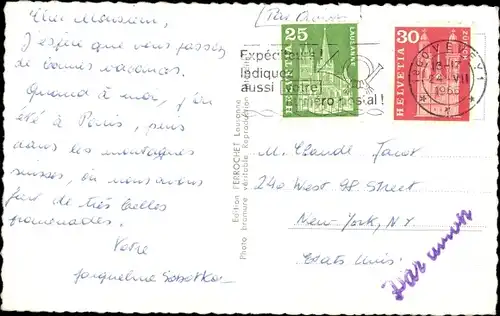 Cher Monsieur,
J'espère que vous passez
de bonnes vacances.
Quand à moi, j'ai
été à Paris, puis
dans les montagnes
suisses, où nous avons
fait de très belles
promenades.
Votre
Jacqueline
Edition PERROCHET Lausanne
Photo bromure véritable Reproduction interdite
Expéditeur!
Indiquez
aussi votre
numéro postal!
25
HELVETIA
LAUSANNE
30
HELVETIA
ZÜRICH
VEVEY 1
VII
M. Claude Jacot
240 West 98 Street
New-York, N.Y.
Etats Unis.
Par avion